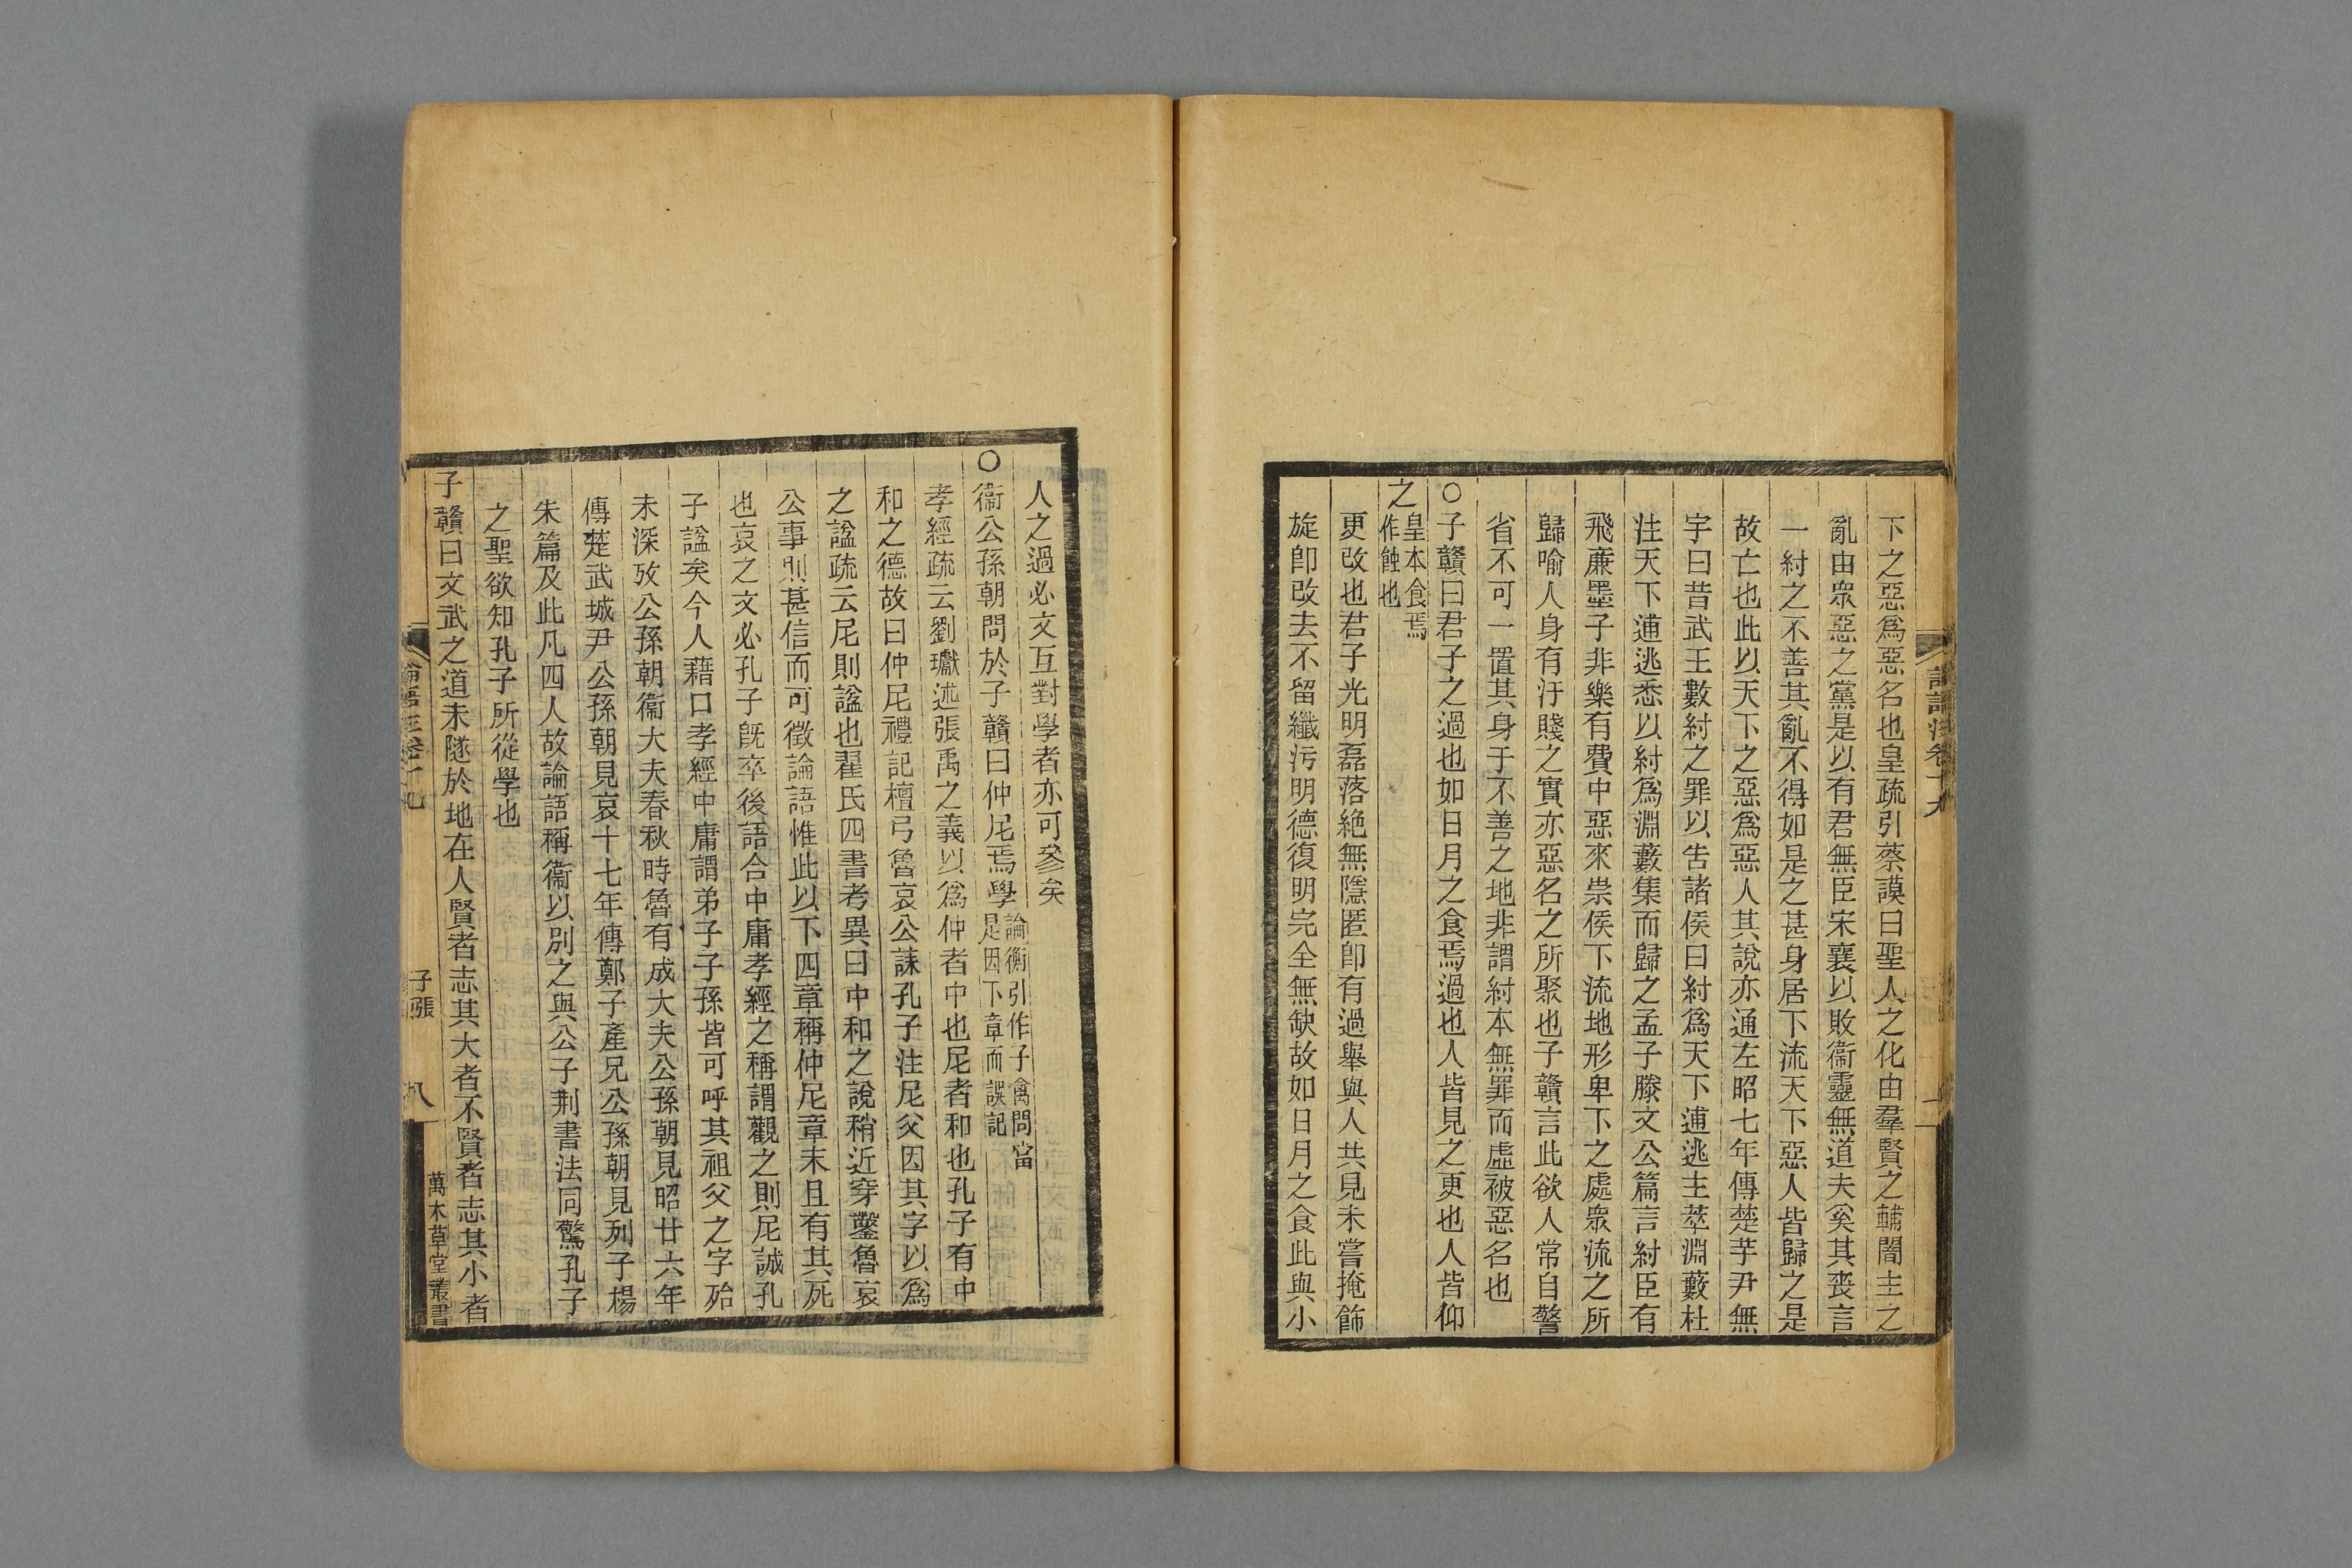 下之惡爲惡名也皇疏引蔡謨曰聖人之化由羣賢之輔闇主之
亂由眾惡之黨是以有君無臣宋襄以敗衞靈無道夫奚其喪言
一紂之不善其亂不得如是之甚身居下流天下惡人皆歸之是
故亡也此以天下之惡爲惡人其說亦通左昭七年傳楚芋尹無
宇曰昔武王數紂之罪以告諸侯曰紂爲天下逋逃主萃淵藪杜
注天下逋逃悉以紂爲淵藪集而歸之孟子滕文公篇言紂臣有
飛廉墨子非樂有費中惡來祟侯下流地形卑下之處眾流之所
歸喻人身有汙賤之實亦惡名之所聚也子贛言此欲人常自警
省不可一置其身于不善之地非謂紂本無罪而虛被惡名也
〇子贛曰君子之過也如日月之食焉過也人皆見之更也人皆仰
之皇本食焉
作蝕也
更改也君子光明磊落絶無隱匿卽有過舉與人共見未嘗掩飾
旋卽改去不留纖污明德復明完全無缺故如日月之食此與小
人之過必文互對學者亦可參矣
〇衞公孫朝問於子贛曰仲尼焉學論衡引作子禽問當
是因下章而誤記
孝經疏云劉瓛述張禹之義以爲仲者中也尼者和也孔子有中
和之德故曰仲尼禮記檀弓魯哀公誄孔子注尼父因其字以爲
之諡疏云尼則諡也翟氏四書考異曰中和之說稍近穿鑿魯哀
公事則甚信而可徵論語惟此以下四章稱仲尼章末且有其死
也哀之文必孔子旣卒後語合中庸孝經之稱謂觀之則尼誠孔
子諡矣今人藉口孝經中庸謂弟子子孫皆可呼其祖父之字殆
未深攷公孫朝衞大夫春秋時魯有成大夫公孫朝見昭廿六年
傳楚武城尹公孫朝見哀十七年傳鄭子產兄公孫朝見列子楊
朱篇及此凡四人故論語稱衞以別之與公子荆書法同驚孔子
之聖欲知孔子所從學也
子贛曰文武之道未墜於地在人賢者志其大者不賢者志其小者
論語注卷十九
子張
八
萬木草堂叢書